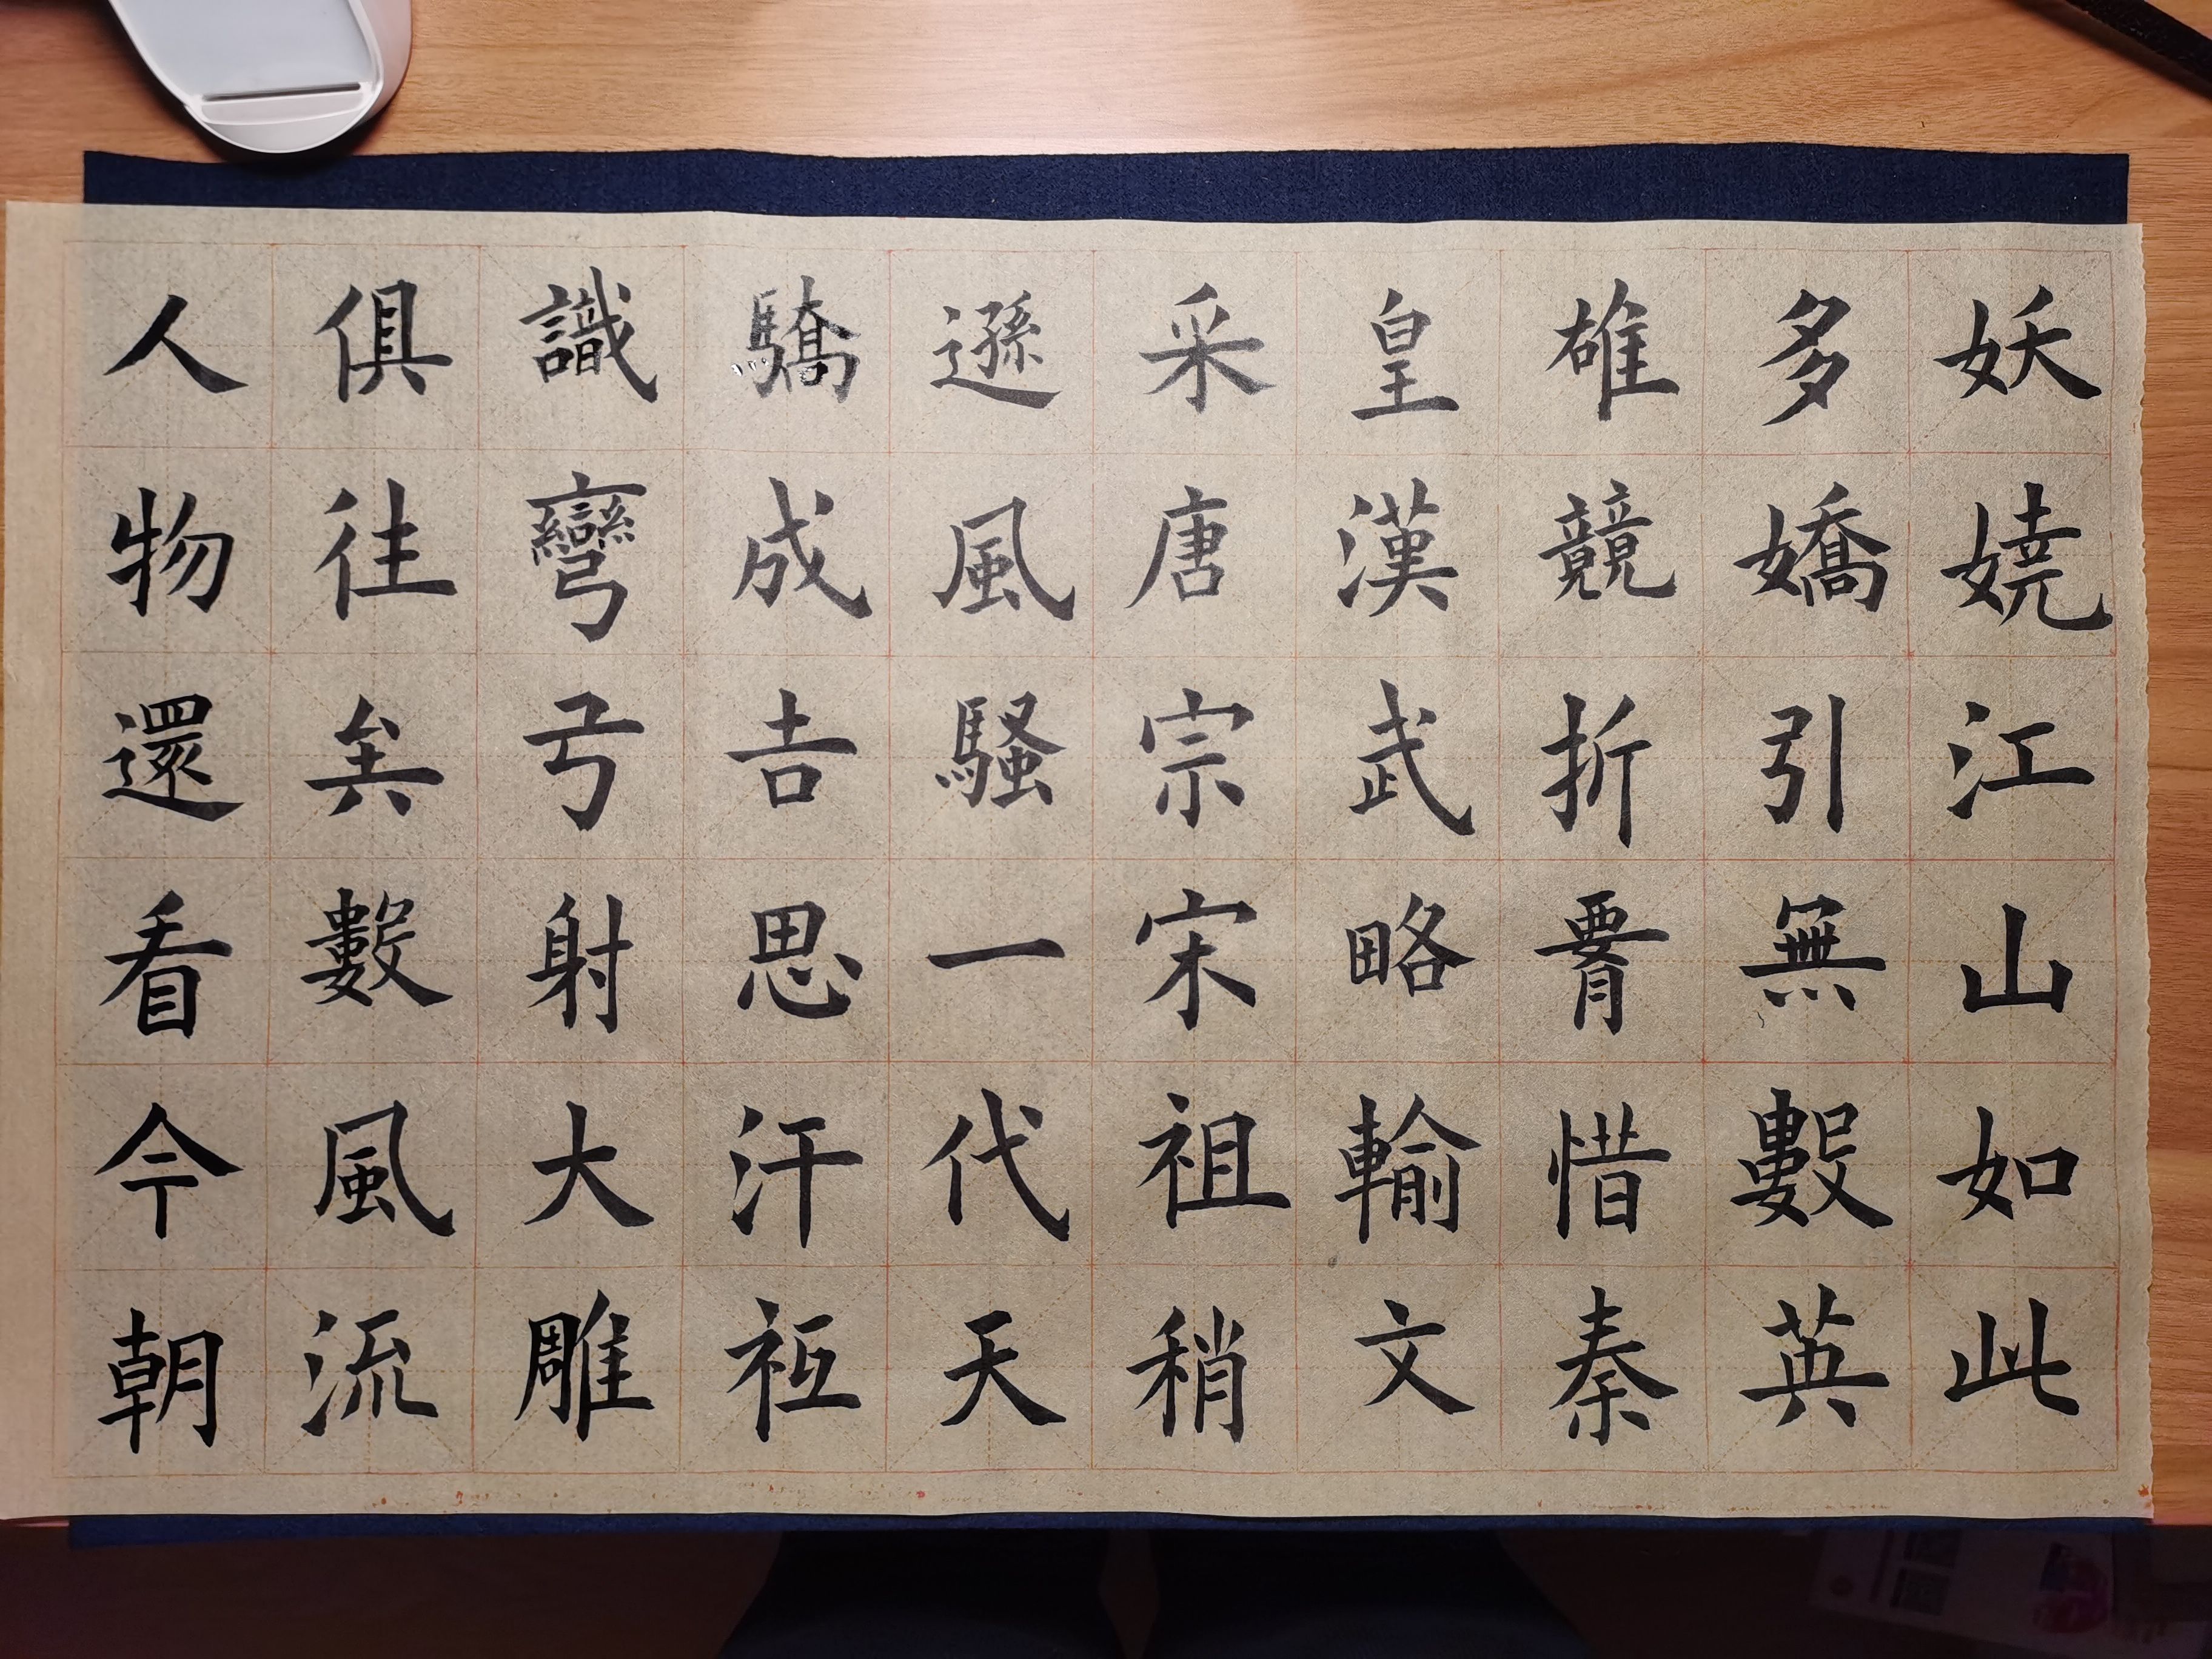 妖嬈江山如此
多嬌引無數英
雄競折腰惜秦
皇漢武略輸文
采唐宗宋祖稍
遜風騷一代天
驕成吉思汗祗
識彎弓射大雕
俱往矣數風流
人物還看今朝